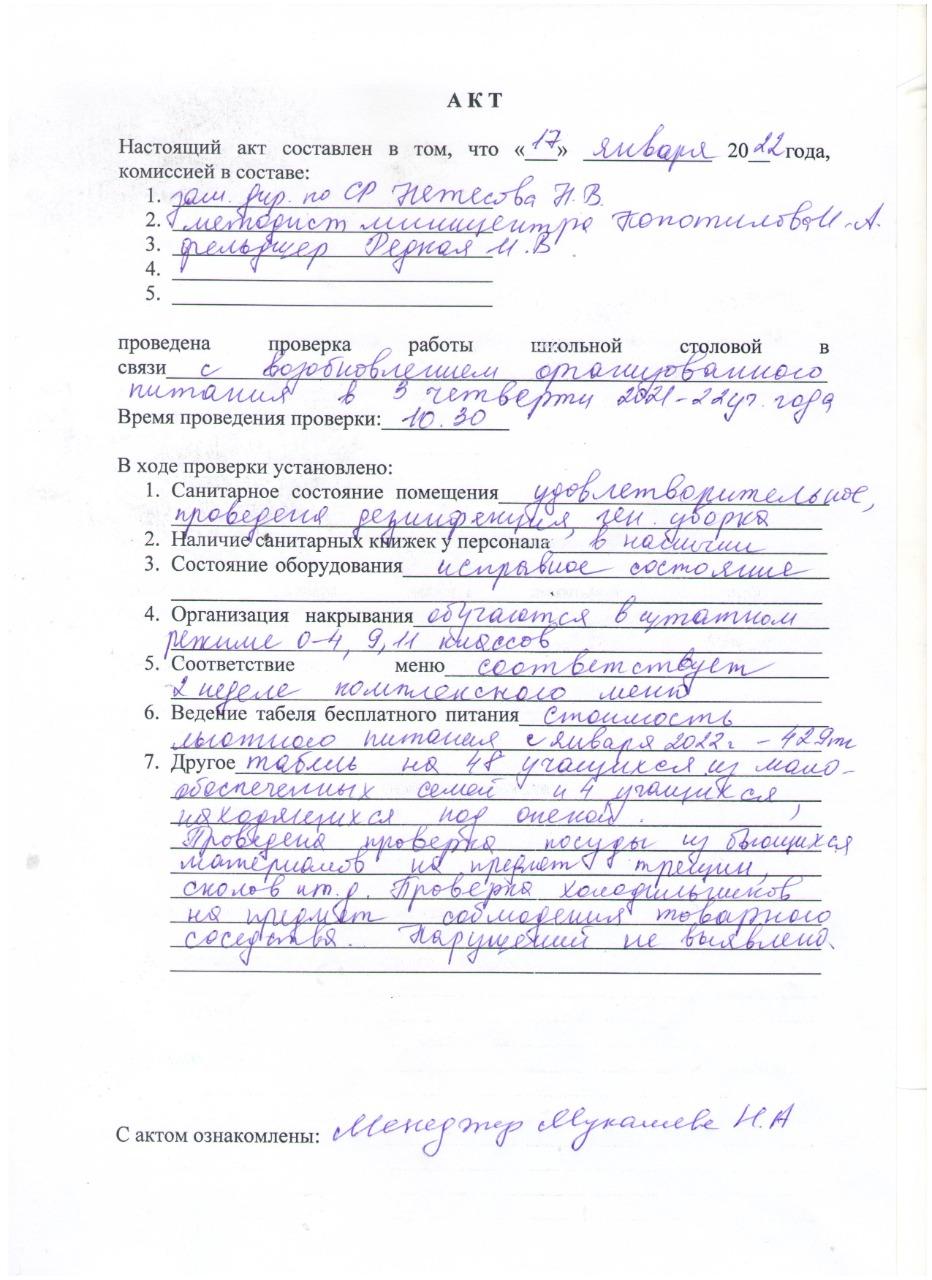 АКТ
Настоящий акт составлен в том, что «17» января 2022 года,
комиссией в составе:
1. зам. дир. по СР Нетесова Н.В.
2. методист минищентра Копотилова И.А.
3. фельдшер Редкая И.В
4.
5.
проведена проверка работы школьной столовой в
связи с возобновлением организованного
питания в 3 четверти 2021-22 уч. года
Время проведения проверки: 10.30
В ходе проверки установлено:
1. Санитарное состояние помещения удовлетворительное,
проведена дезинфекция, ген. уборка
2. Наличие санитарных книжек у персонала в наличии
3. Состояние оборудования исправное состояние
4. Организация накрывания обучаются в штатном
режиме 0-4, 9, 11 классов
5. Соответствие меню соответствует
2 неделе комплексного меню
6. Ведение табеля бесплатного питания стоимость
льготного питания с января 2022 г - 429 тг
7. Другое табель на 48 учащихся из мало-
обеспеченных семей и 4 учащихся,
находящихся под опекой.
Проведена проверка посуды из бьющихся
материалов на предмет трещин,
сколов и т.д. Проверка холодильников
на предмет соблюдения товарного
соседства. Нарушений не выявлено.
С актом ознакомлены: Менеджер Н.А